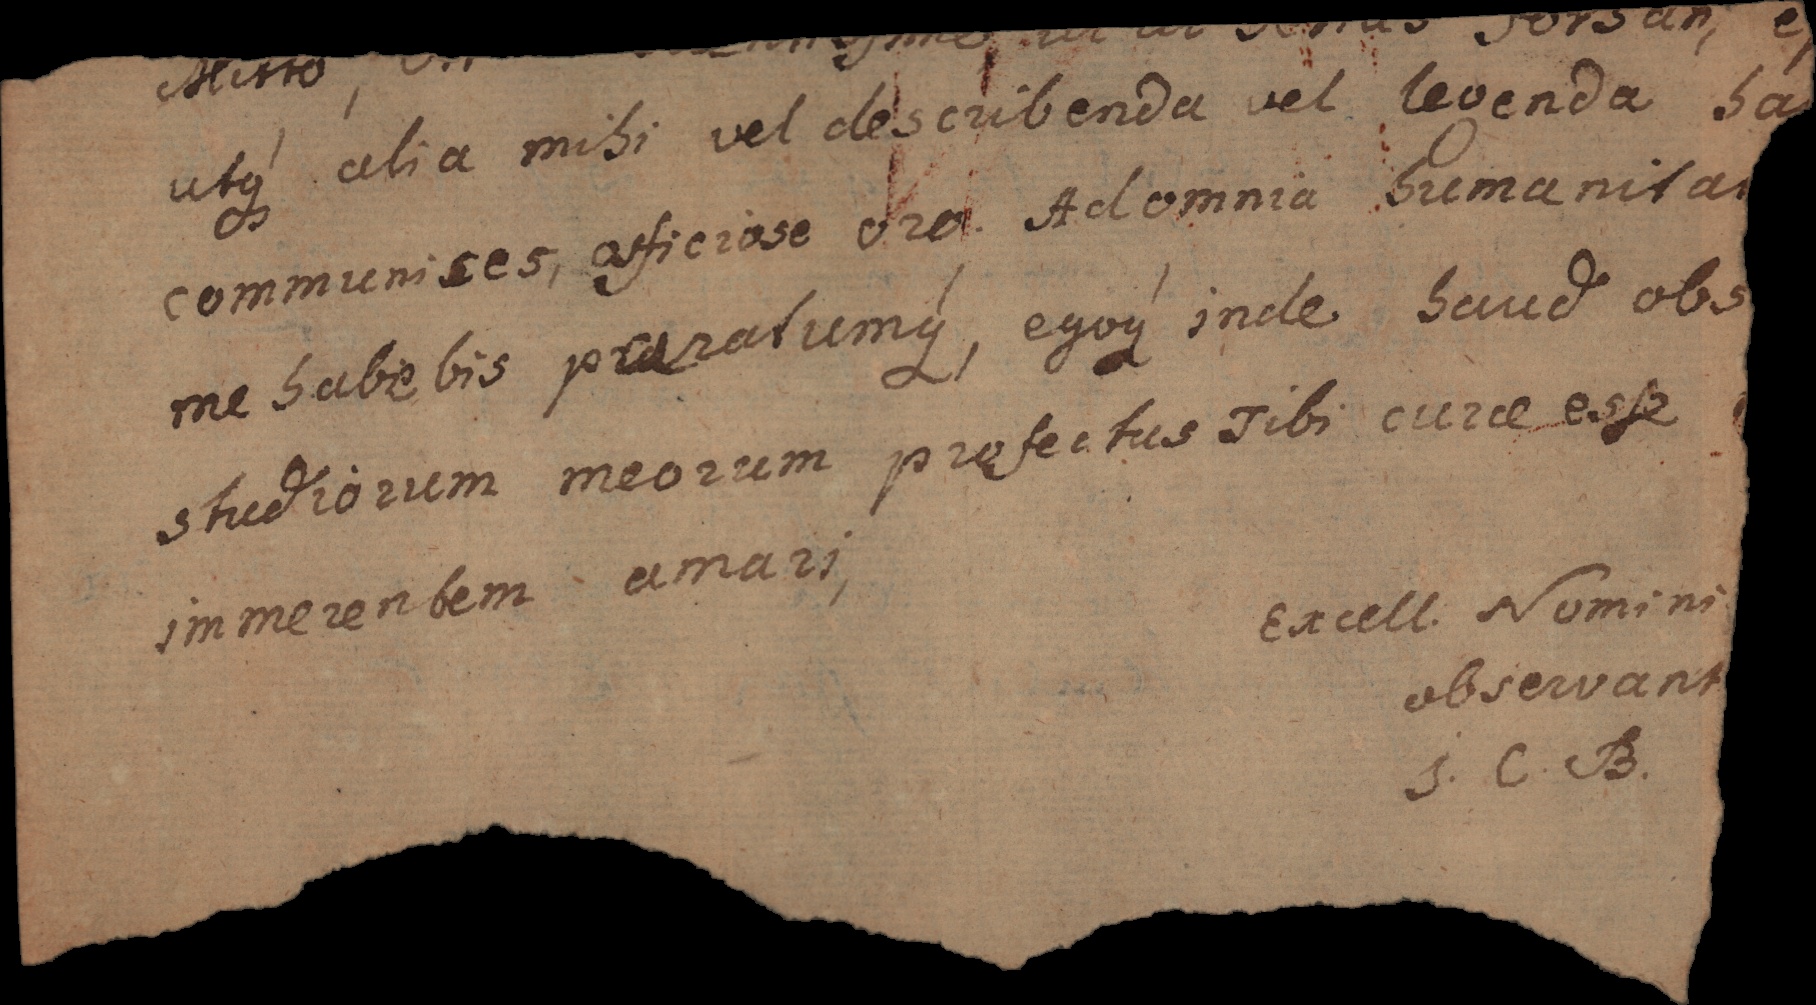 Mitto, forsan,
utq́ alia mihi vel describenda vel legenda ha
communices, officiose oro. Ad omnia humanitat
me habebis paratumq́, egoq́ inde haud obs
studiorum meorum profectus Tibi curæ esse
immerentem amari,
Excell. Nomini
observant
J. C. B.